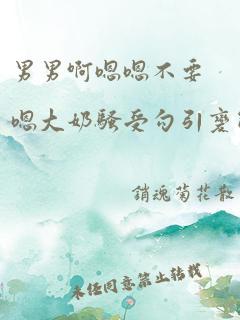 男男啊嗯嗯不要
嗯大奶騷受勾引
銷魂菊花散
未经同意禁止转载